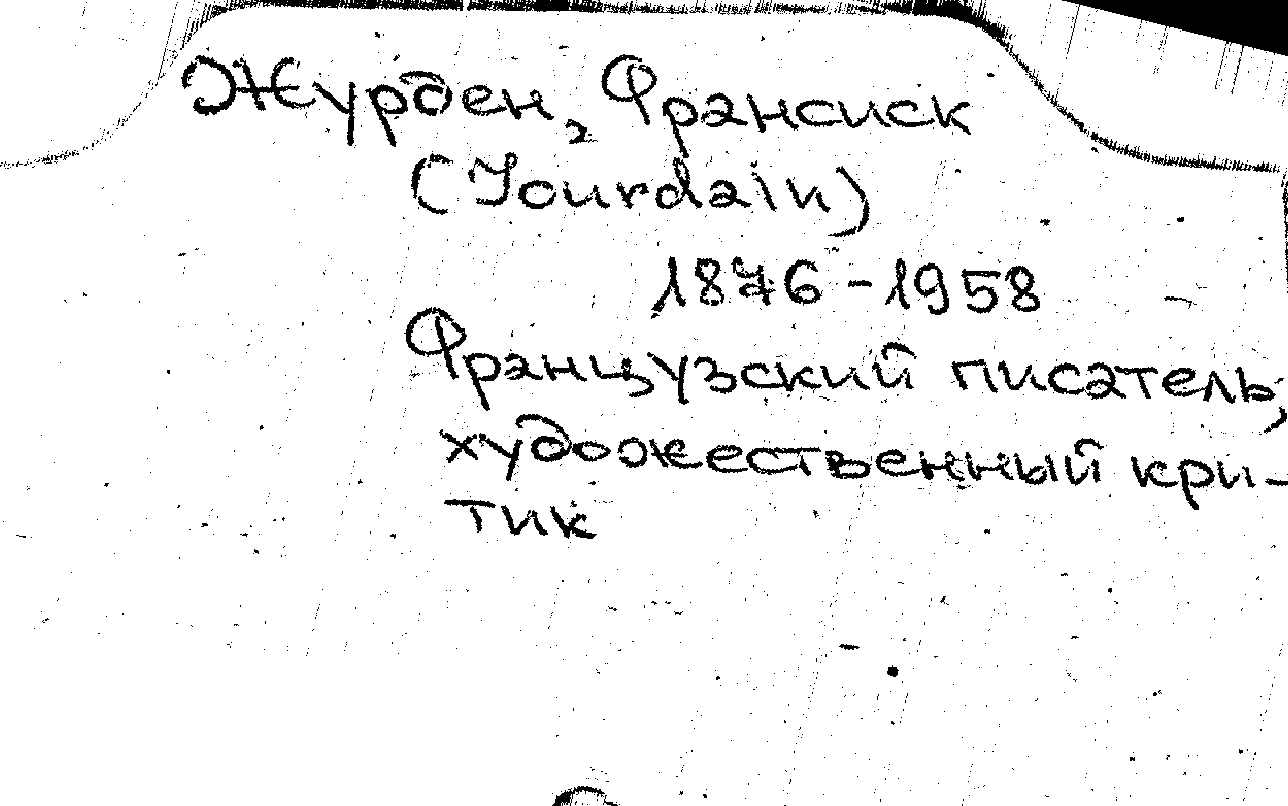 Журден, Франсиск
(Jourdain)
1876-1958
Французский писатель,
художественный кри-
тик